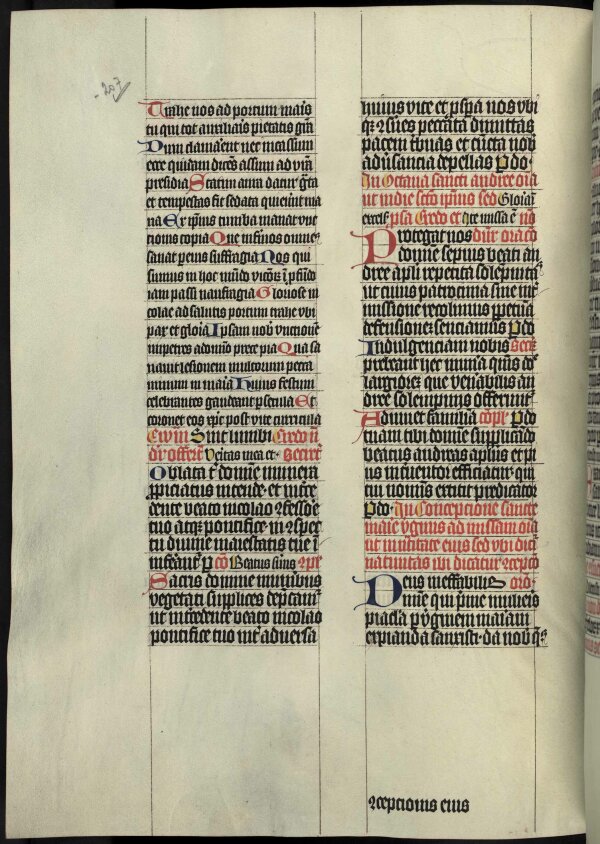 207
Trahe nos ad portum maris
tu qui tot auxiliaris pietatis grā
Dum clamarent nec incassum
ecce quidam dicēs assum ad vrā
presidia Statim aura datur grata
et tempestas fit sedata quieverūt ma
ria Ex ipius tumba manat unc
tionis copia Que infirmos omnes
sanat per eius suffragia Nos qui
sumus in hoc mūdo vicioꝝ ī pfūdo
iam passi naufragia Gloriose ni
colae ad salutis portum trahe ubi
pax et gloria Ipsam nob unctionē
impetres ad dnm prece pia Qua sa
navit lesionem multorum pecca
minum in maria Huius festum
celebrantes gaudeant p secula Et
coronet eos xp̄c post vite curricula
Ewm Sint lumbi Credo nō
dr̄ offert Veritas mea et Secret
Oblata tibi domine munera
ppiciatus intende et interce
dente beato nicolao confessore
tuo atqꝫ pontifice in conspec
tu divine maiestatis tue
Beatus servus cple
Sacris domine muneribus
vegetati supplices deprecam̄
ut intercedente beato nicolao
pontifice tuo inter adversa
muius vite et pspa nos ubi
qꝫ conserves peccata dimittas
pacem tribuas et cuncta nob
adversancia depellas P do
In Octava sancti andree oīa
ut in die scto ipius sed Gloria ī
excels psa Credo et
Protegat nos dūr oracō
domine sepius beati an
dree apli repetita solempnitas
ut cuius patrocinia sine inter
missione recolimus ppetuā
defensionē senciamus P do
Indulgenciam nobis Secr
prebeant hec munera qs dn̄e
largiorē que venerabilis an
dree solempniis offerunt
Adiuvet familiā cople P do
tuam tibi domine supplicādo
beatus andreas aplus et pi
us interventor efficiatur qui
tui nominis extitit predicator
P do In Concepcione sancte
marie virginis ad missam oīa
ut in nativitate eius sed ubi dicit
nativitas ibi dicatur concepcō
Deus ineffabilis oro
misericordie qui prime mulieris
piacla per virginem mariam
expianda sanxisti da nob qs
concepcionis eius